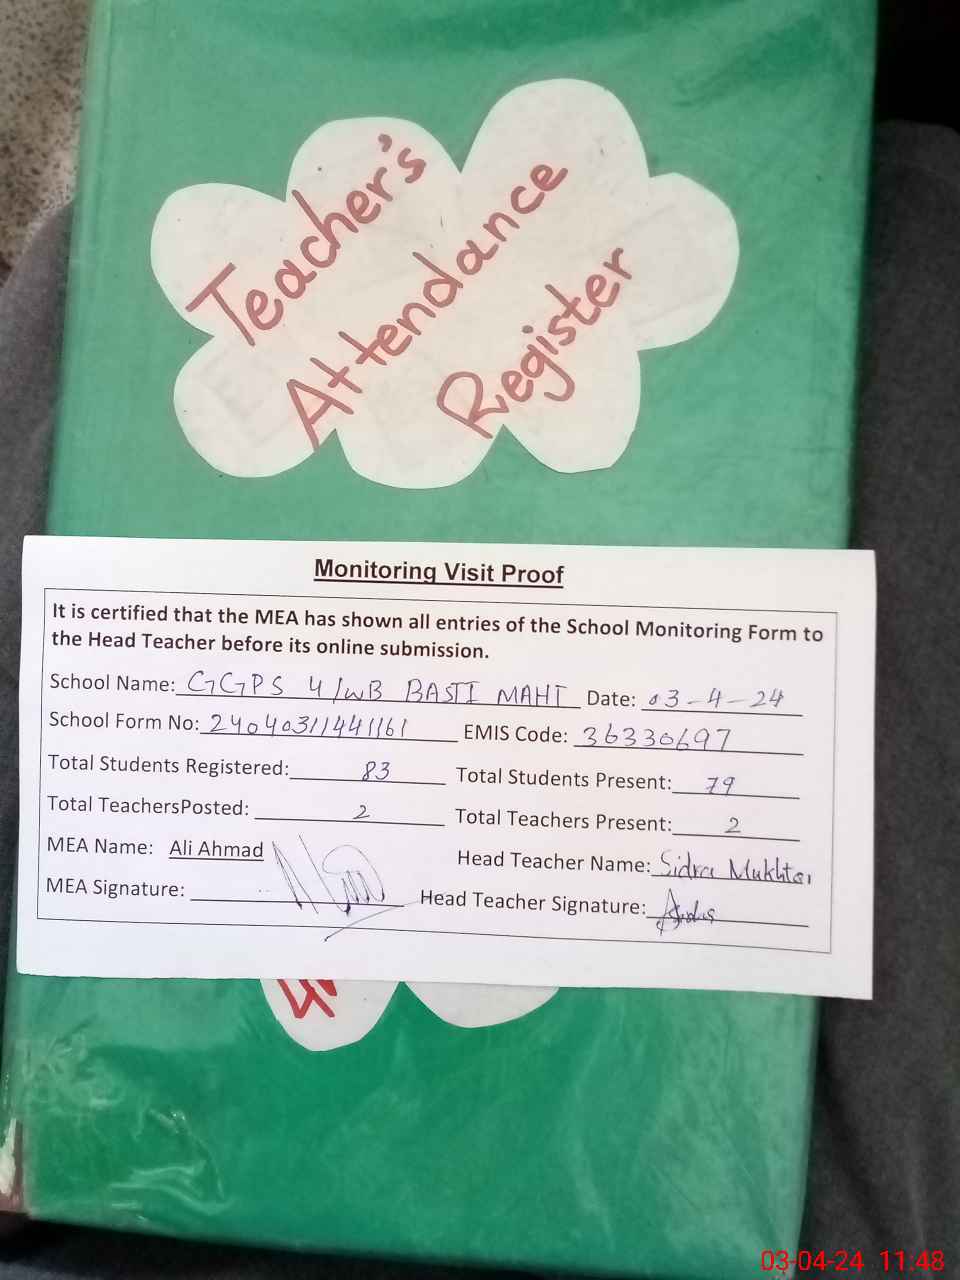 Teacher's
Attendance
Register
Monitoring Visit Proof
It is certified that the MEA has shown all entries of the School Monitoring Form to
the Head Teacher before its online submission.
School Name: GGPS 4/WB BASTI MAHI Date: 03-4-24
School Form No: 24040311441161 EMIS Code: 36330697
Total Students Registered: 83 Total Students Present: 79
Total TeachersPosted: 2 Total Teachers Present: 2
MEA Name: Ali Ahmad Head Teacher Name: Sidra Mukhtar
MEA Signature: Head Teacher Signature:
03-04-24 11:48